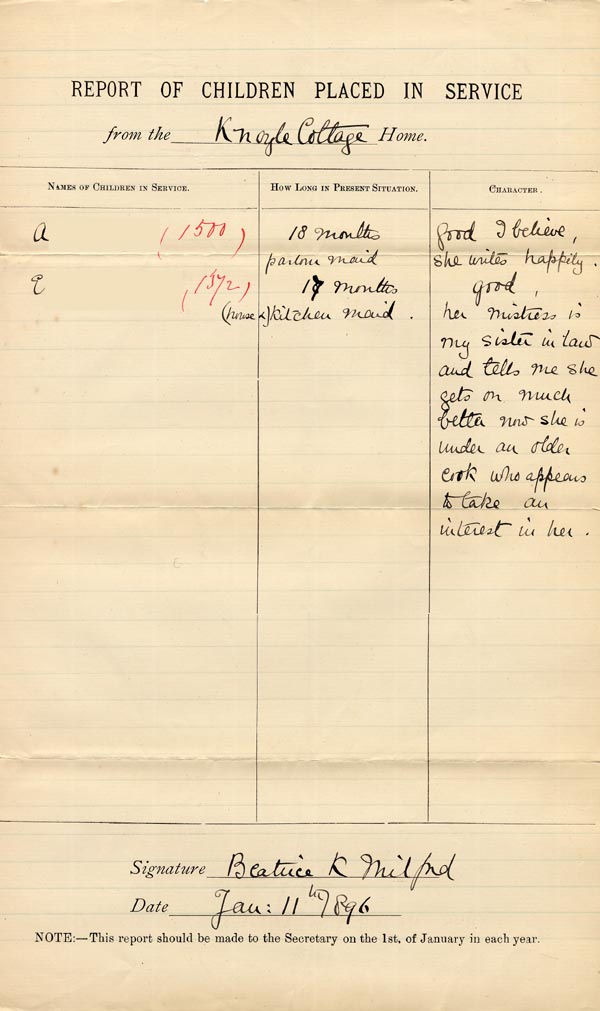 REPORT OF CHILDREN PLACED IN SERVICE
from the Knoyle Cottage Home.
NAMES OF CHILDREN IN SERVICE. HOW LONG IN PRESENT SITUATION. CHARACTER.
A (1500) 18 months good I believe,
parlour maid she writes happily.
E (1372) 17 months good,
(house &) kitchen maid. her mistress is
my sister in law
and tells me she
gets on much
better now she is
under an older
cook who appears
to take an
interest in her.
Signature Beatrice K Milford
Date Jan: 11th/896
NOTE:—This report should be made to the Secretary on the 1st. of January in each year.